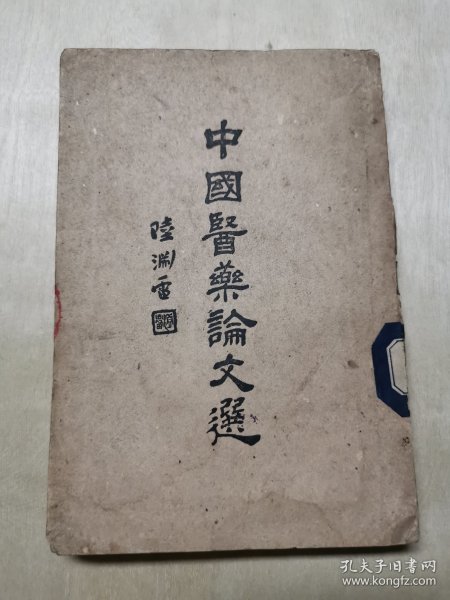 中國醫藥論文選
陸淵雷
孔夫子旧书网
www.kongfz.com